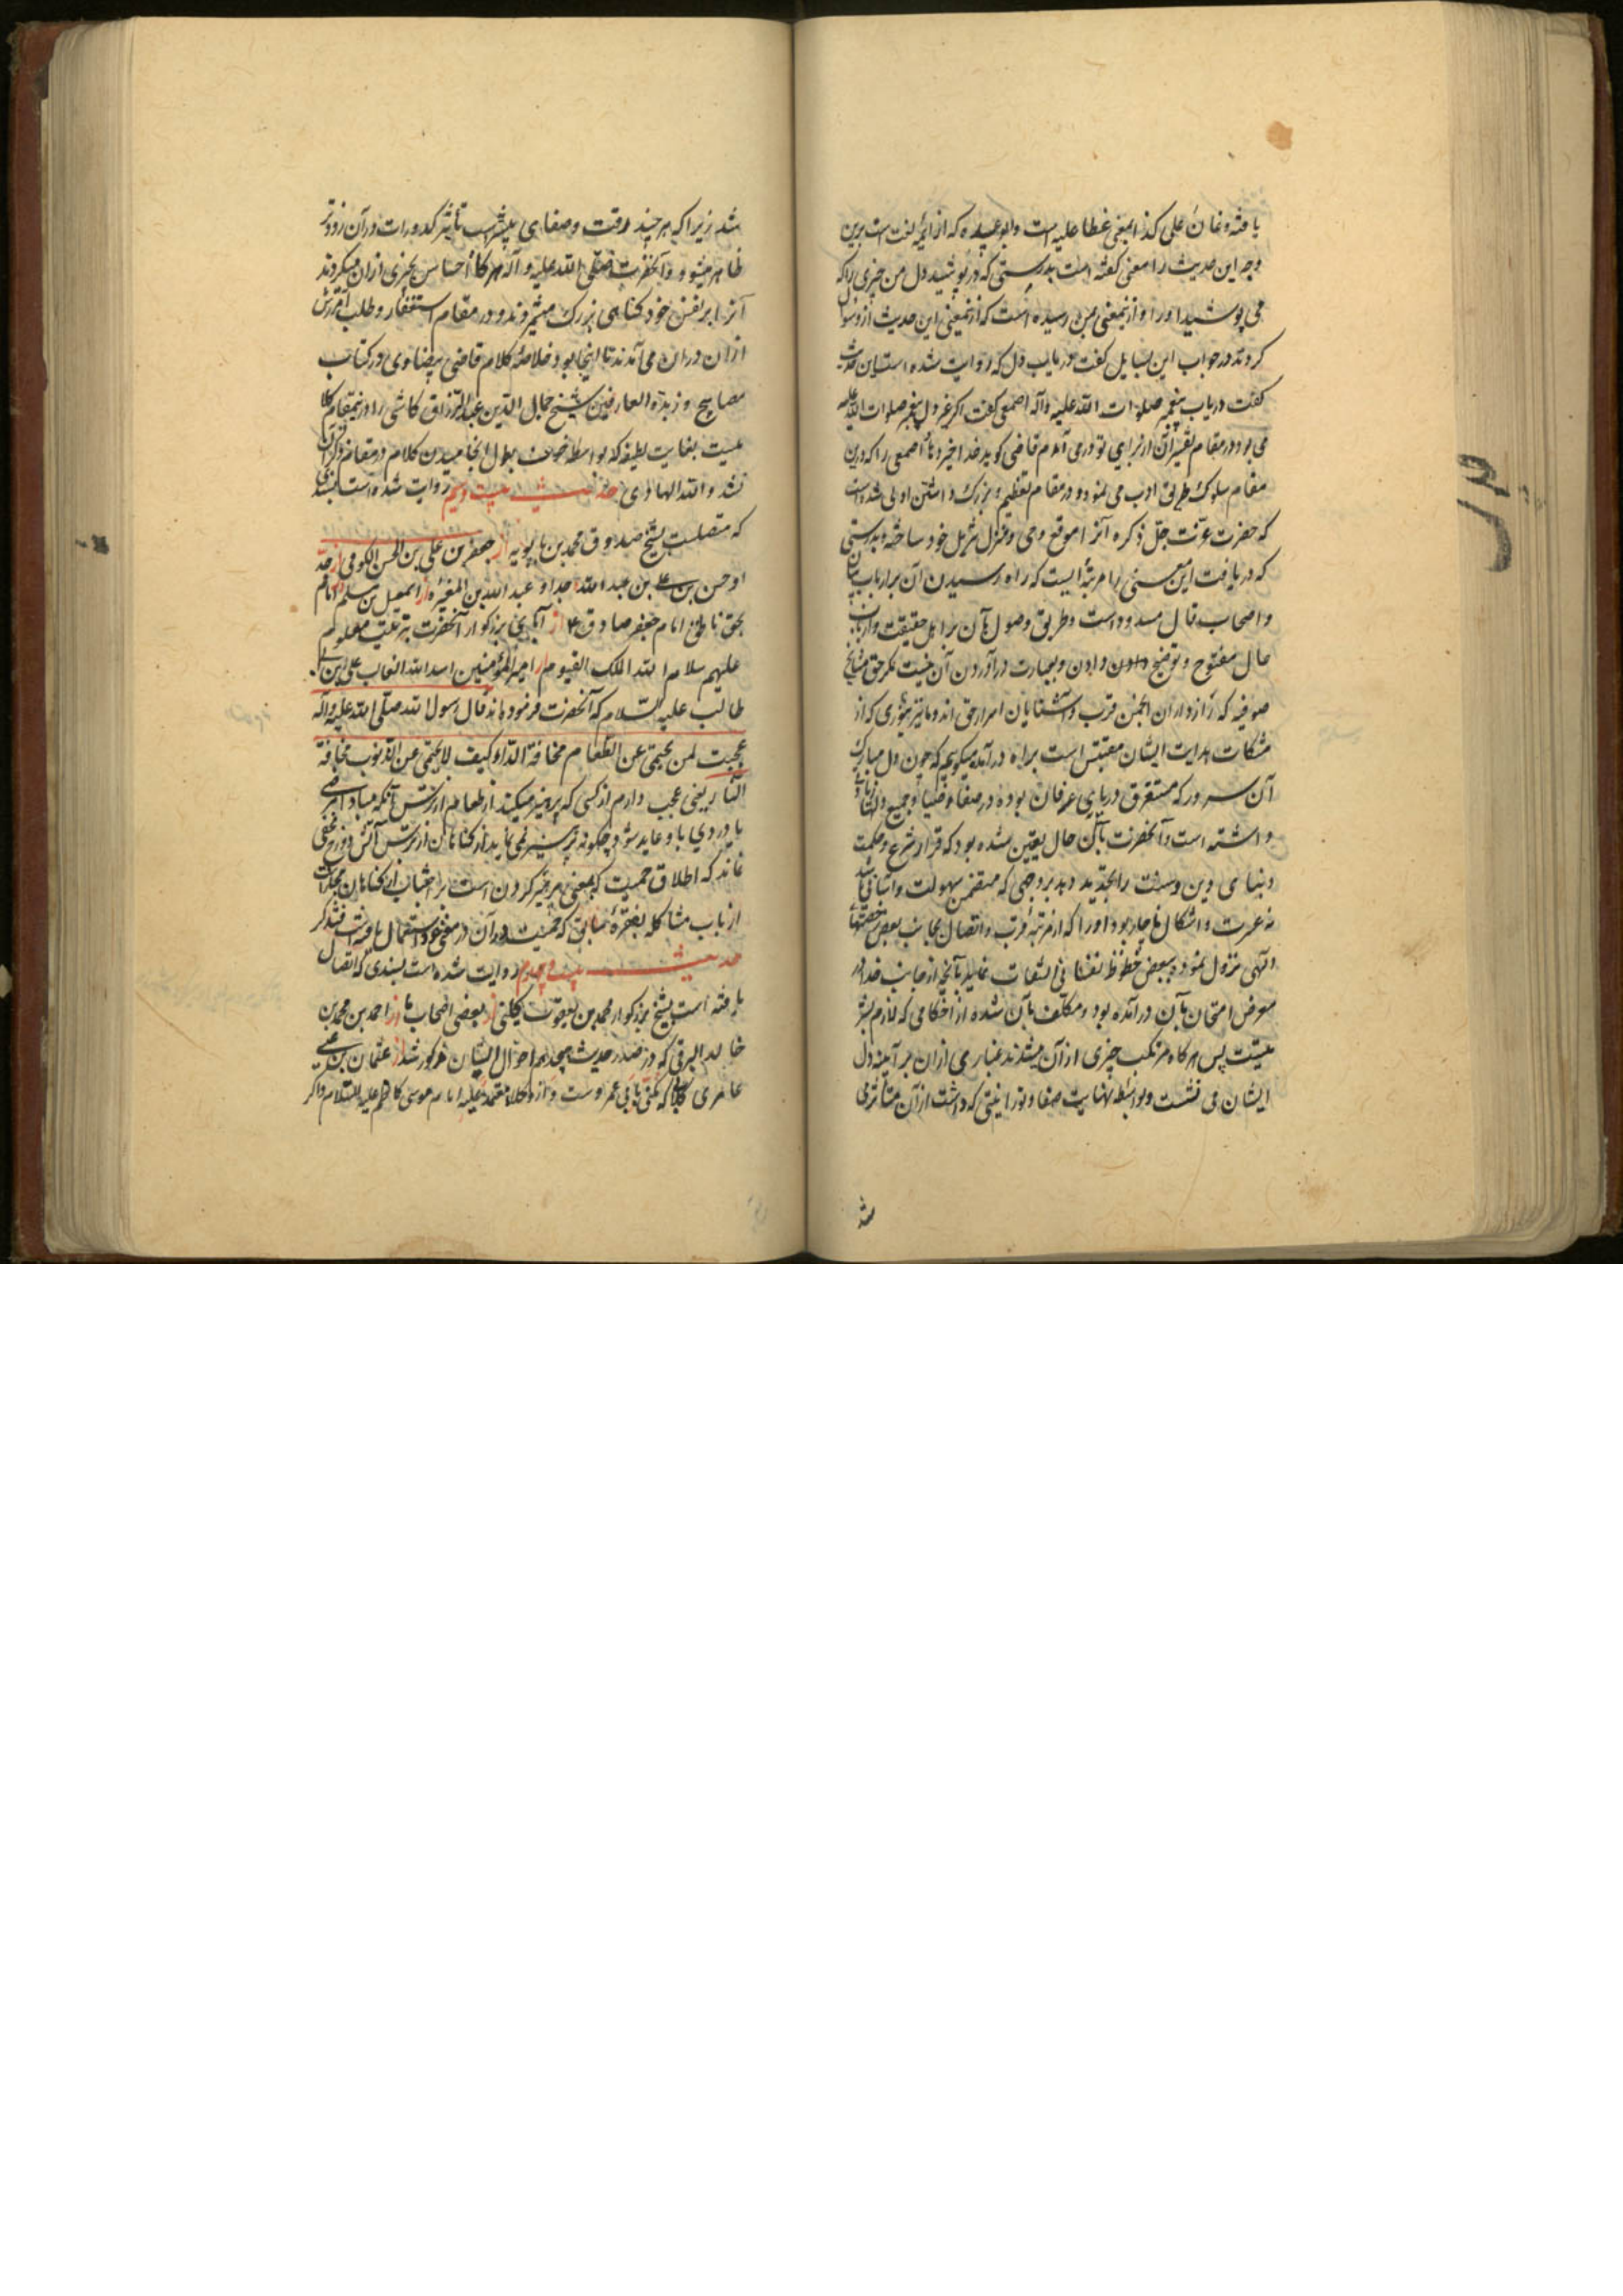 یافته و غان علی کذا بمعنی غطا علیه است و ابو عبیده که از ائمه لغت است برین
وجه این حدیث را معنی گفته است بدرستی که در می‌پوشید دل من چیزی را که
می پوشید او را و از اینمعنی بمن رسیده است که از معنی این حدیث از و سؤال
کردند در جواب این بسایل گفت در باب دل که روایت شده است این حدیث
گفت در باب پیغمبر صلوات الله علیه و آله اصمعی گفت اگر غیر دل پیغمبر صلوات الله علیه
می بود در مقام تفسیر آن از برای تو در می آمدم قاضی گوید خدا خیر دهاد اصمعی را که درین
مقام سلوک طریق ادب می نموده و در مقام تعظیم و بزرگ داشتن اولی شده است
که حضرت عزت جل ذکره آنرا موقع وحی و منزل تنزیل خود ساخته و بدرستی
که دریافت این معنی را مرتبه ایست که راه رسیدن آن بر ارباب بیان
و اصحاب قال مسدود است و طریق وصول بآن بر اهل حقیقت و ارباب
حال مفتوح و توضیح دادن و بعبارت درآوردن آن نیست مگر حق مشایخ
صوفیه که رازداران انجمن قرب و آشنایان اسرار حق اند و ما نیز بنوری که از
مشکات هدایت ایشان مقتبس است براه درآمده میگوییم که چون دل مبارک
آن سرور که مستغرق دریای عرفان بوده در صفا و ضیا و جمیع دلها زیادتی
داشته است و آنحضرت بآن حال یقین شده بود که قرار شرع و حکمت
و بنای دین و سنت را تجدید دهد بر وجهی که متضمن سهولت و آسانی باشد
نه عسرت و اشکال ناچار بود او را که از مرتبه قرب و اتصال بجانب بعض رخصتهای
الهی نزول نموده ببعض حظوظ نفسانی التفات نماید با آنچه از جانب خدا در
معرض امتحان بآن درآمده بود و مکلف بآن شده از احکامی که لازم بشر
یتست پس هرگاه مرتکب چیزی از آن میشدند غباری از ان بر آینه دل
ایشان می نشست و بواسطه نهایت صفا و نورانیتی که داشت از آن متاثر می
شد
شد زیرا که هر چند رقت و صفای بیشتر است تأثیر کدورات در آن زودتر
ظاهر میشود و آنحضرت صلی الله علیه و آله هرگاه احساس بچیزی از ان میکردند
آنرا بر نفس خود گناهی بزرگ میشمردند و در مقام استغفار و طلب آمرزش
از ان در ان می آمدند تا اینجا بود خلاصه کلام قاضی بیضاوی در کتاب
مصابیح و زبدة العارفین شیخ جمال الدین عبد الرزاق کاشی را در اینمقام کلا
میست بغایت لطیف که بواسطه خوف بطول انجامیدن کلام در مقام ذکر آن
نشد و الله الهادی حدیث بیست و سیم روایت شده است بسندی
که متصلست بشیخ صدوق محمد بن بابویه از جعفر بن علی بن الحسن الکوفی از جد
او حسن بن علی بن عبد الله از جد او عبد الله بن المغیره از اسمعیل بن مسلم از امام
بحق ناطق امام جعفر صادق ع از آبای بزرگوار آنحضرت بترتیب معلوم
علیهم سلام الله الملک القیوم از امیر المؤمنین اسد الله الغالب علی بن ابی
طالب علیه السلام که آنحضرت فرموده اند قال رسول الله صلی الله علیه و آله
عجبت لمن یحتمی عن الطعام مخافة الداء و کیف لا یحتمی عن الذنوب مخافة
النار یعنی عجب دارم از کسی که پرهیز میکند از طعام از ترس آنکه مبادا مرضی
یا دردی باو عاید شود چگونه پرهیز نمی نماید از گناهان از ترس آتش دوزخ مخفی
نماند که اطلاق حمیت که بمعنی پرهیز کردن است بر اجتناب از گناهان مجاز است
از باب مشاکله بفقره سابق که حمیت در آن در معنی خود استعمال یافته است فتذکر
حدیث بیست و چهارم روایت شده است بسندی که اتصال
یافته است بشیخ بزرگوار محمد بن یعقوب کلینی از بعضی اصحاب ما از احمد بن محمد بن
خالد البرقی که در صدر حدیث پنجم احوال ایشان مذکور شد از عثمان بن عیسی
عامری کلابی که مکنی بابی عمرو است و از وکلاء معتمد علیه امام موسی کاظم علیه السلام و اگر